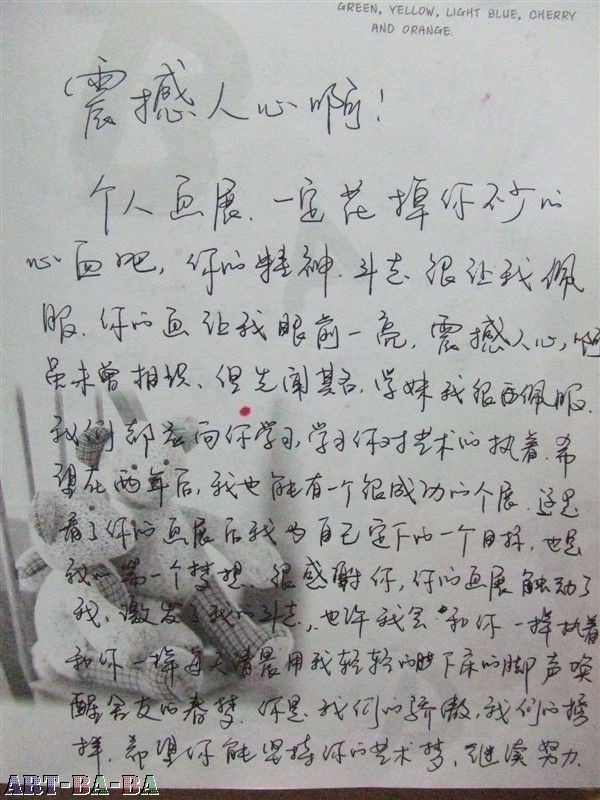 GREEN, YELLOW, LIGHT BLUE, CHERRY
AND ORANGE.
震撼人心啊!
个人画展、一定花掉你不少的
心血吧,你的精神、斗志很让我佩
服、你的画让我眼前一亮,震撼人心,啊
虽未曾相识、但先闻其名,学妹我很西佩服、
我们都应向你学习,学习你对艺术的执着、希
望在两年后,我也能有一个很成功的个展、这是
看了你的画展后我为自己定下的一个目标,也是
我的第一个梦想 很感谢你,你的画展触动了
我、激发了我的斗志,也许我会和你一样执着
和你一样每天清晨用我轻轻的下床的脚声唤
醒舍友的春梦、你是我们的骄傲,我们的榜
样、希望你能坚持你的艺术梦,继续努力.
ART-BA-BA